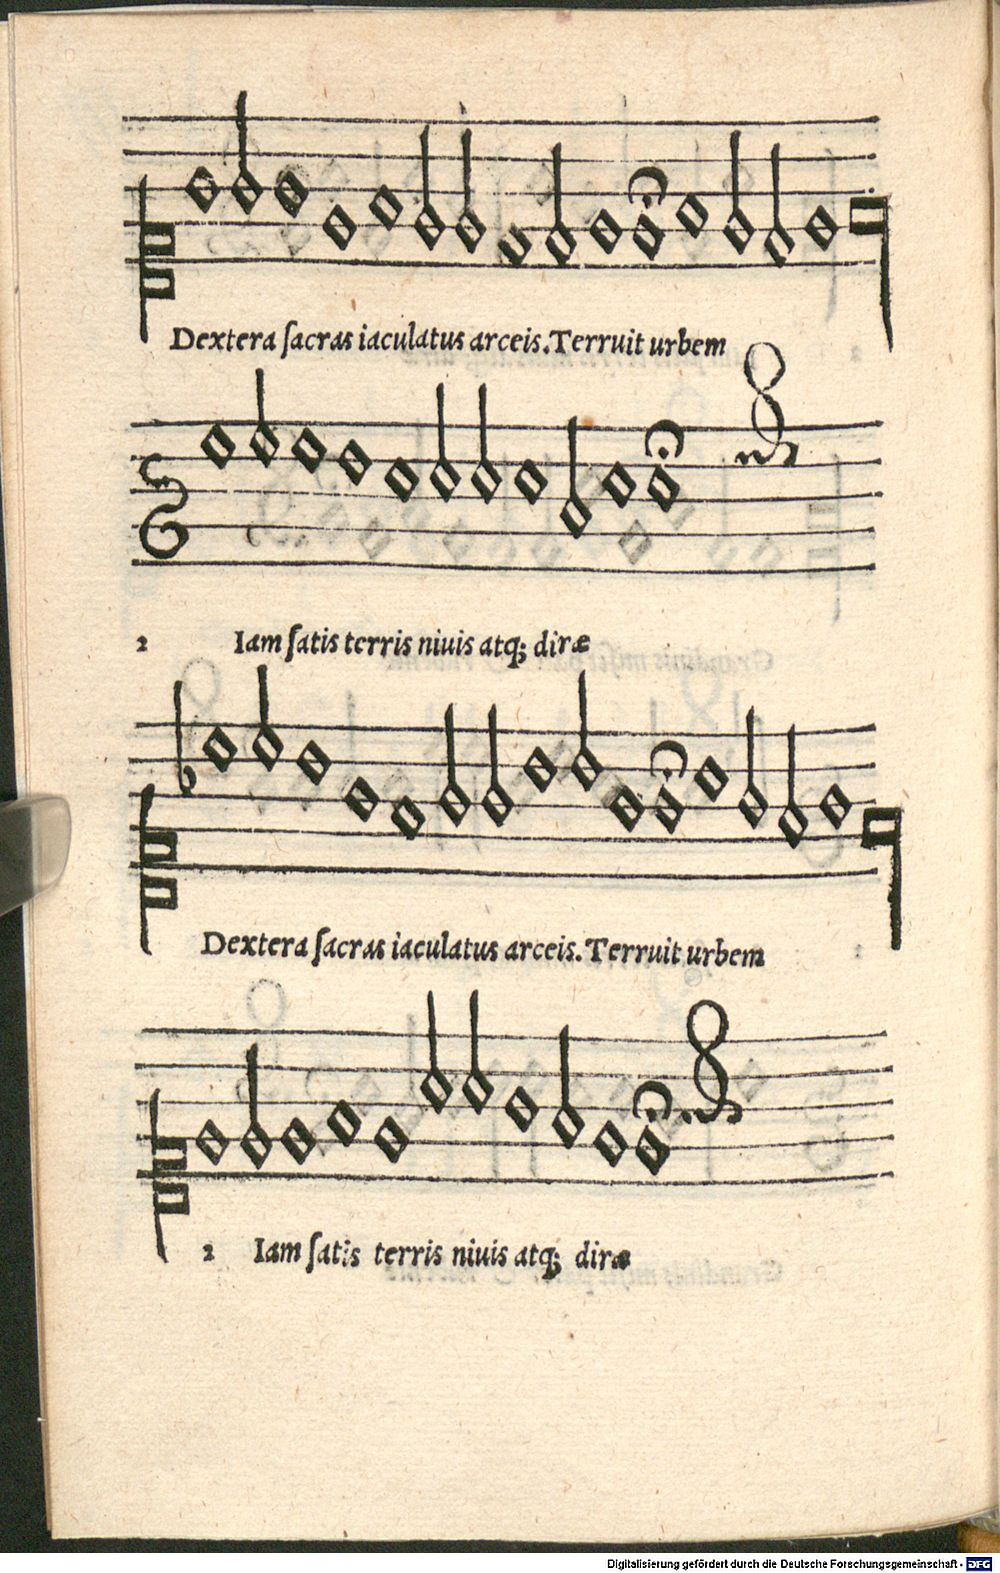 Dextera ſacras iaculatus arceis. Terruit urbem
2 Iam ſatis terris niuis atq; diræ
Dextera ſacras iaculatus arceis. Terruit urbem
2 Iam ſatis terris niuis atq; diræ
Digitalisierung gefördert durch die Deutsche Forschungsgemeinschaft - DFG